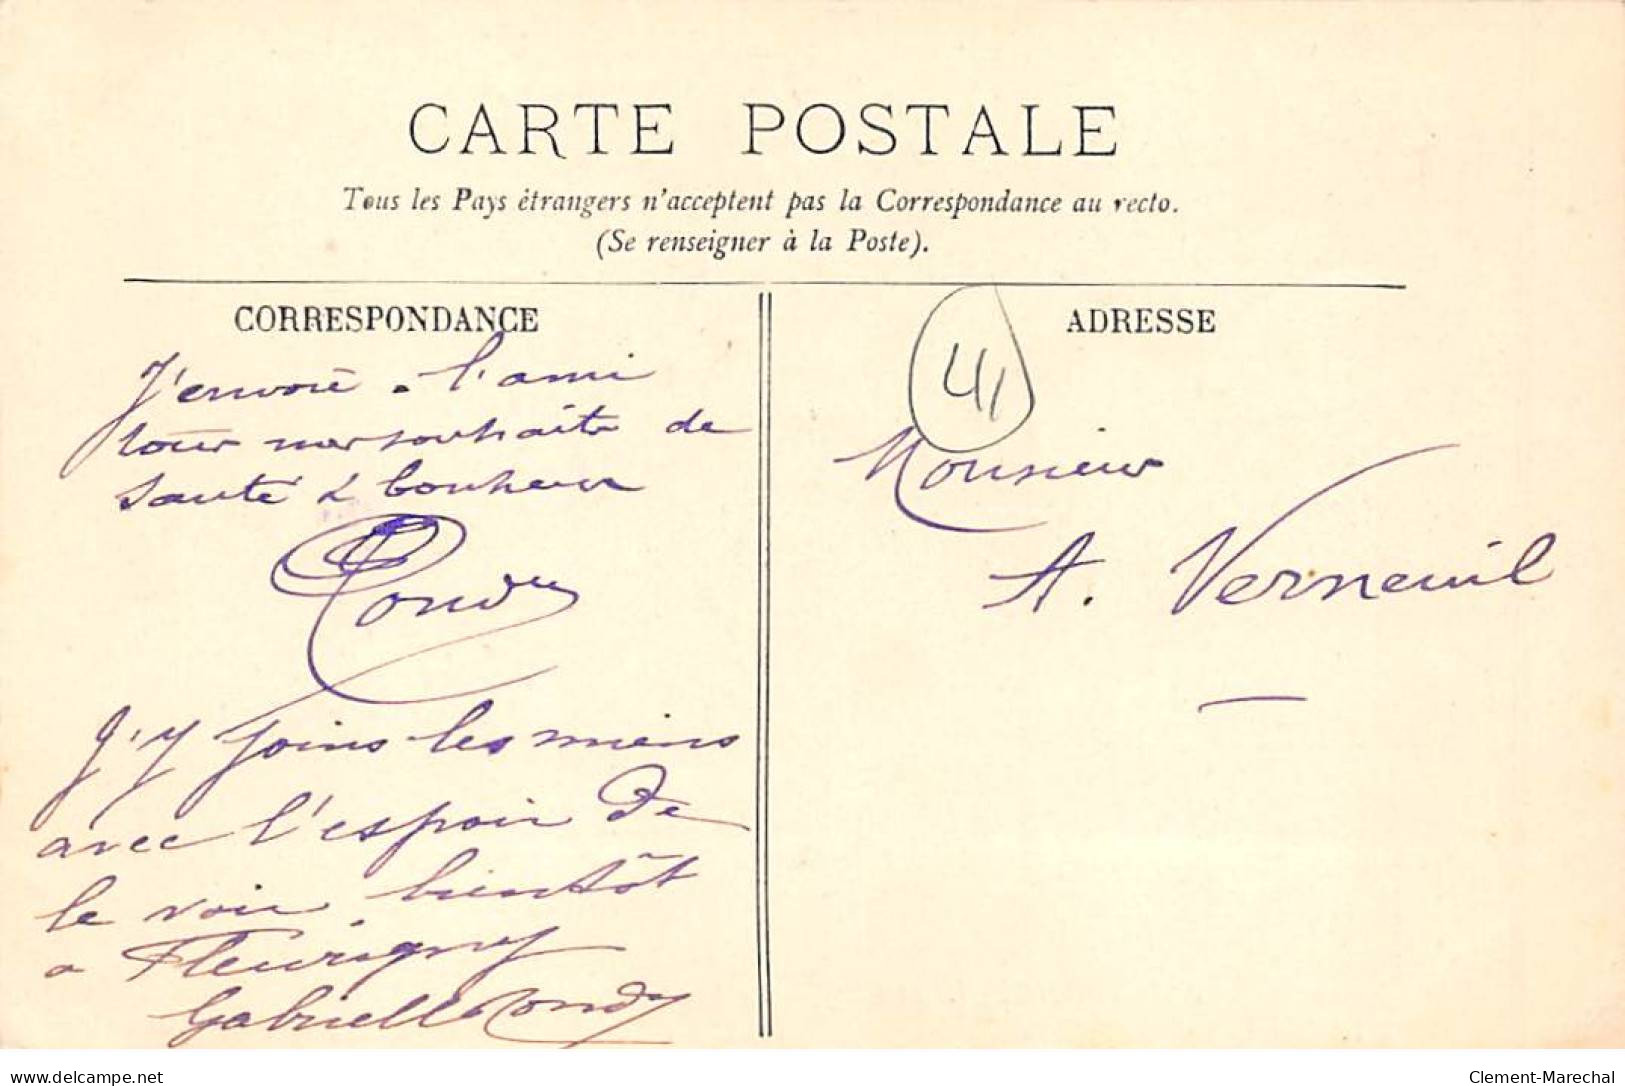 CARTE POSTALE
Tous les Pays étrangers n'acceptent pas la Correspondance au recto.
(Se renseigner à la Poste).
CORRESPONDANCE
J'envoie à l'ami
tous mes souhaits de
santé & bonheur
J'y joins les miens
avec l'espoir de
le voir bientôt
a Fleurigny
Gabrielle
ADRESSE
41
Monsieur
A. Verneuil
www.delcampe.net
Clement-Marechal